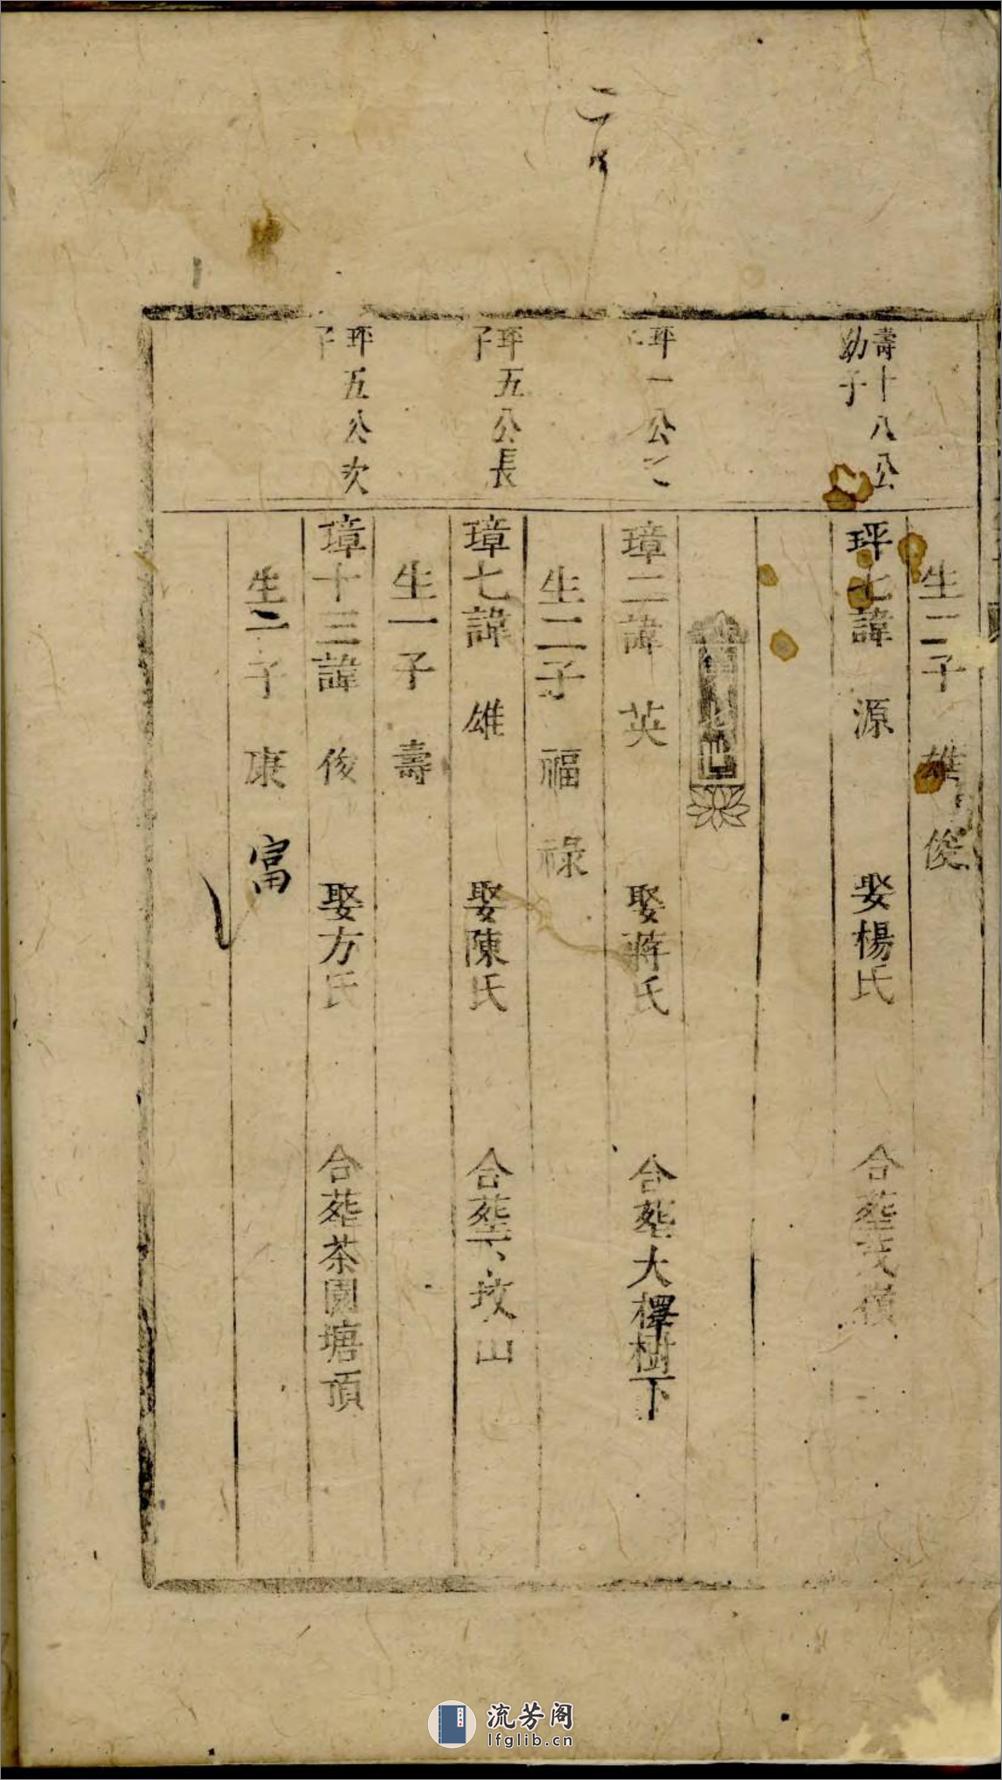 生二子 雄 俊
壽十八公
幼子
玶七諱 源 娶楊氏 合塟茂嶺
玶一公之
子
璋二諱 英 娶蔣氏 合塟大檡樹下
生二子 福 祿
玶五公長
子
璋七諱 雄 娶陳氏 合塟下坟山
生一子 壽
玶五公次
子
璋十三諱 俊 娶方氏 合塟茶園塘頂
生二子 康 富
流芳阁
lfglib.cn